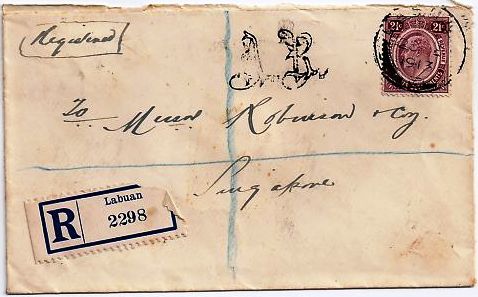 Registered
A.R.
21c 21c
To Messrs Robinson & Coy.
Singapore
R Labuan
2298